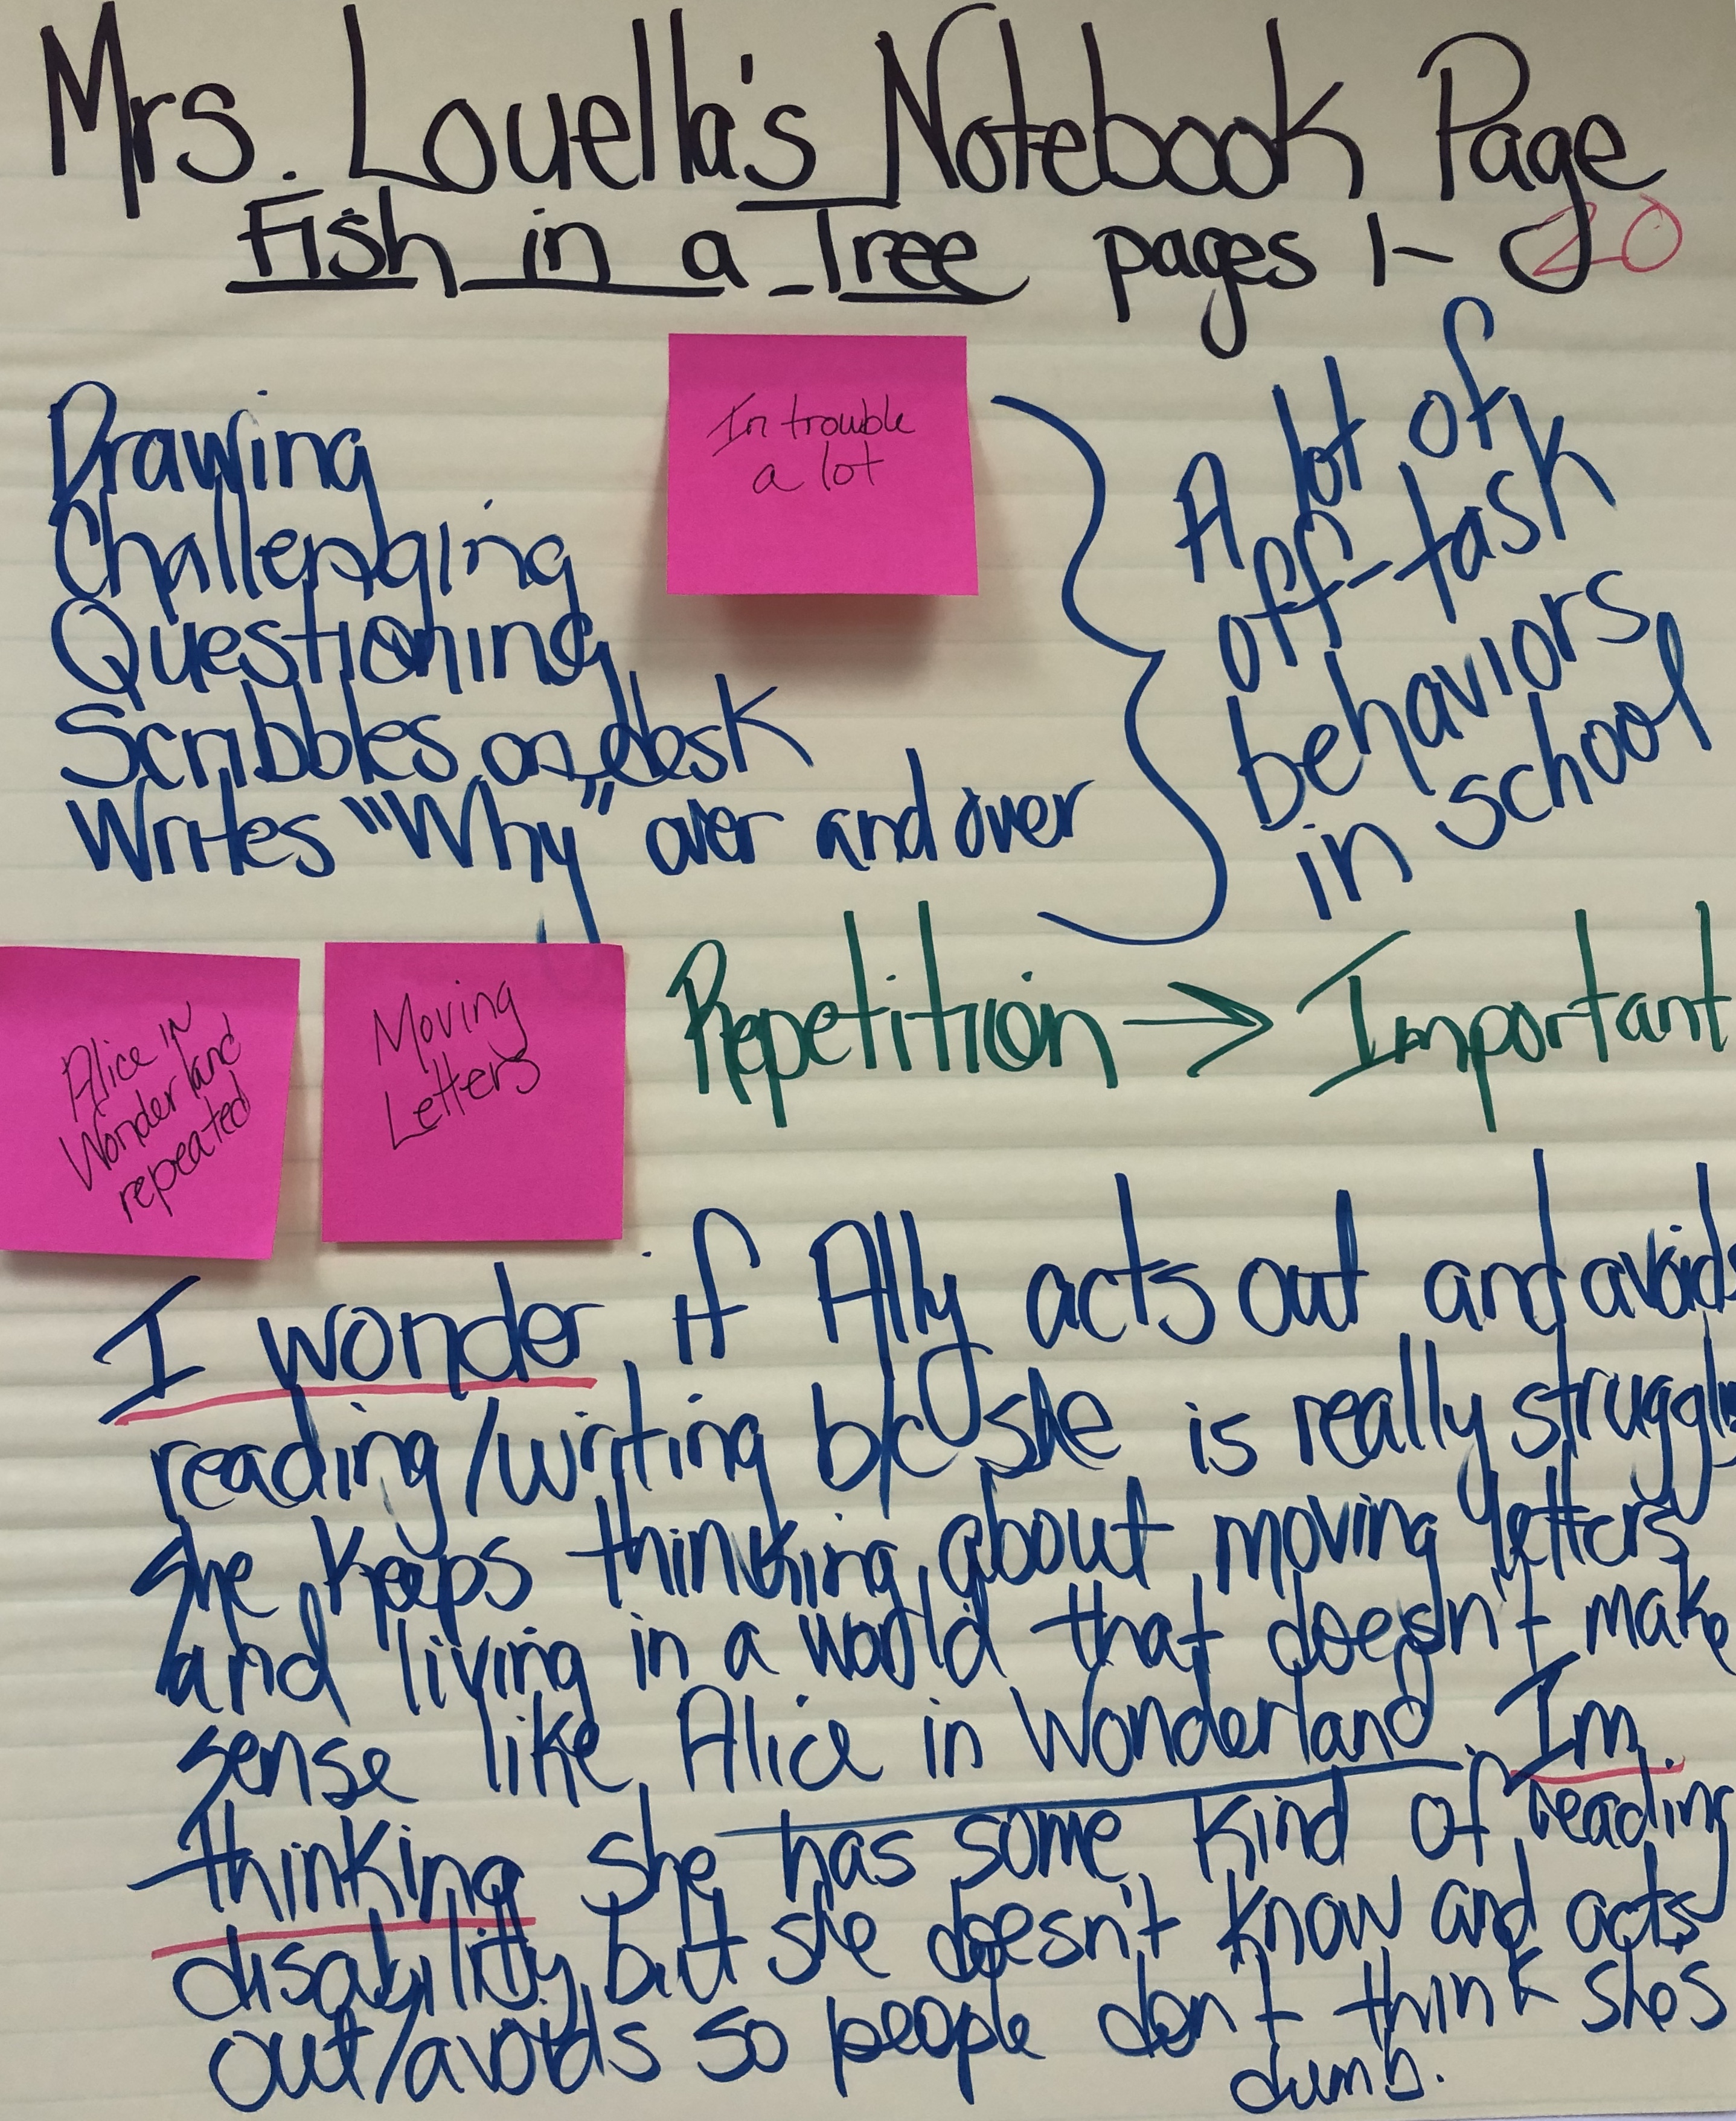 Mrs. Louella's Notebook Page
Fish in a Tree pages 1-20
In trouble
a lot
Drawing
Challenging
Questioning
Scribbles on desk
Writes "Why" over and over
A lot of
off-task
behaviors
in school
Alice in
Wonderland
repeated
Moving
Letters
Repetition → Important
I wonder if Ally acts out and avoids
reading/writing b/c she is really struggl
She keeps thinking about moving letters
and living in a world that doesn't make
sense like Alice in Wonderland. Im
thinking she has some kind of reading
disability but she doesn't know and acts
out/avoids so people don't think shes
dumb.